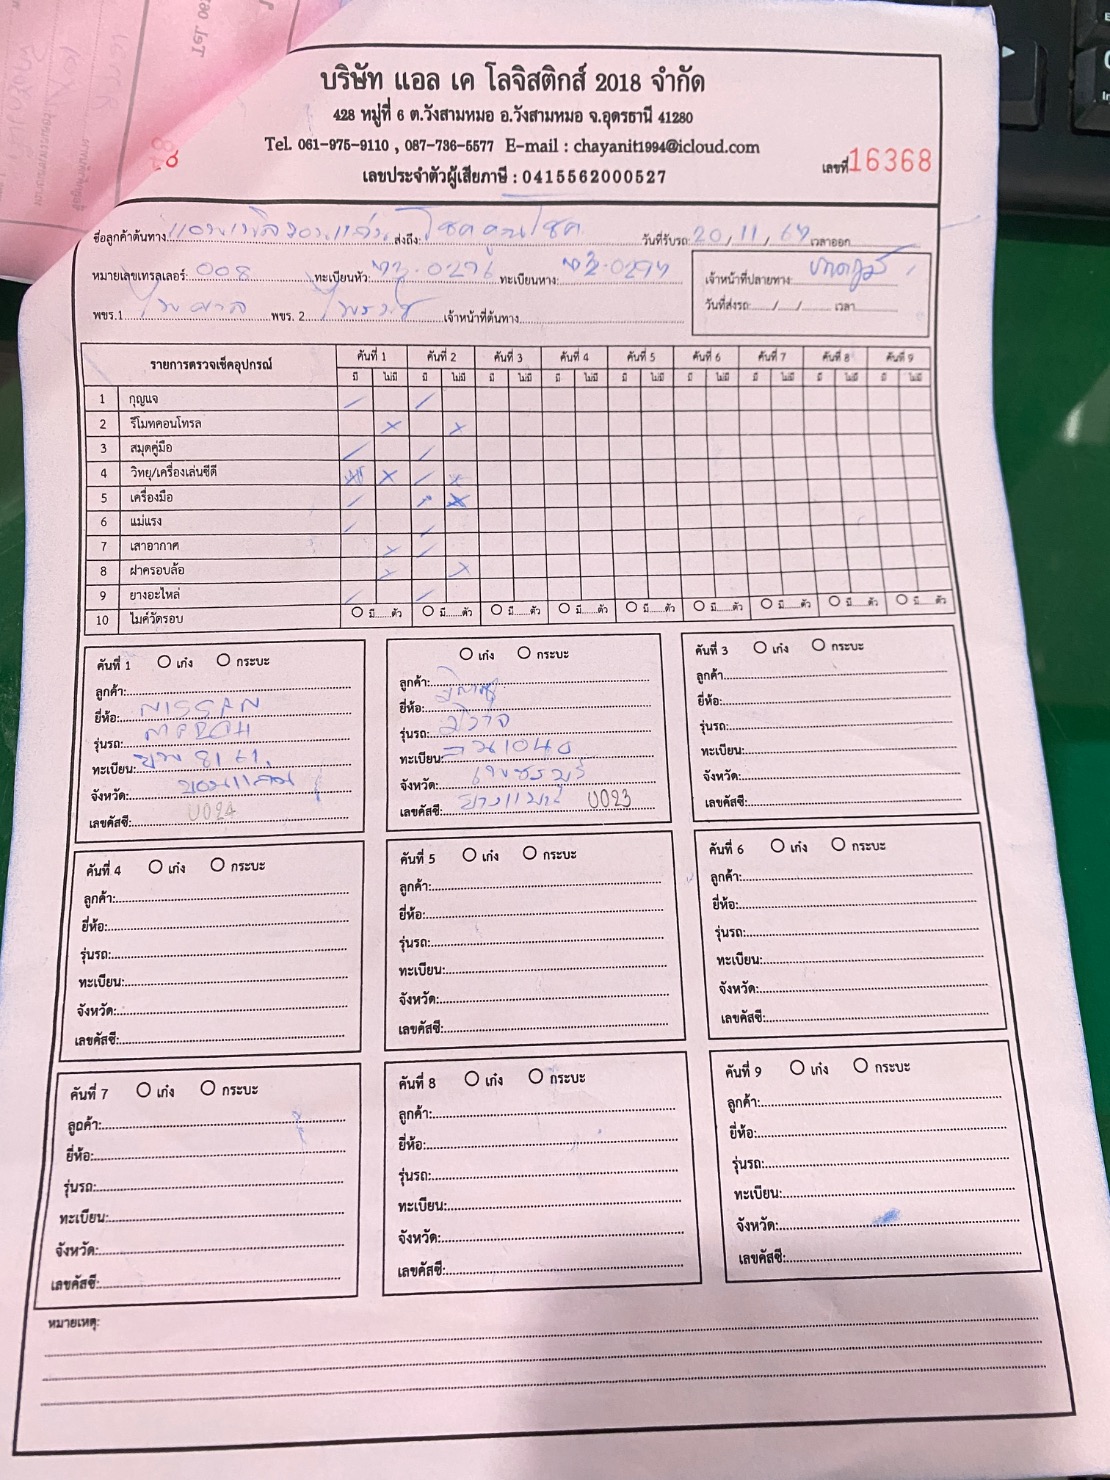 บริษัท แอล เค โลจิสติกส์ 2018 จำกัด
428 หมู่ที่ 6 ต.วังสามหมอ อ.วังสามหมอ จ.อุดรธานี 41280
Tel. 061-975-9110 , 087-736-5577 E-mail : chayanit1994@icloud.com
เลขประจำตัวผู้เสียภาษี : 0415562000527
เลขที่ 16368
ชื่อลูกค้าต้นทาง ส่งถึง: โชคคูณโชค วันที่รับรถ: 20 / 11 / 67 เวลาออก
หมายเลขเทรลเลอร์: 008 ทะเบียนหัว: 0296 ทะเบียนหาง: 0297
เจ้าหน้าที่ปลายทาง:
พขร.1 ไพศาล พขร. 2 เจ้าหน้าที่ต้นทาง
วันที่ส่งรถ: / / เวลา
รายการตรวจเช็คอุปกรณ์ คันที่ 1 คันที่ 2 คันที่ 3 คันที่ 4 คันที่ 5 คันที่ 6 คันที่ 7 คันที่ 8 คันที่ 9
มี ไม่มี มี ไม่มี มี ไม่มี มี ไม่มี มี ไม่มี มี ไม่มี มี ไม่มี มี ไม่มี มี ไม่มี
1 กุญแจ
2 รีโมทคอนโทรล
3 สมุดคู่มือ
4 วิทยุ/เครื่องเล่นซีดี
5 เครื่องมือ
6 แม่แรง
7 เสาอากาศ
8 ฝาครอบล้อ
9 ยางอะไหล่
10 ไมค์วัดรอบ มี ตัว มี ตัว มี ตัว มี ตัว มี ตัว มี ตัว มี ตัว มี ตัว มี ตัว
คันที่ 1 เก๋ง กระบะ
ลูกค้า:
ยี่ห้อ: NISSAN
รุ่นรถ: MARCH
ทะเบียน: 8161
จังหวัด: ขอนแก่น
เลขคัสซี: U024
เก๋ง กระบะ
ลูกค้า:
ยี่ห้อ:
รุ่นรถ: มิราจ
ทะเบียน: 1040
จังหวัด: เพชรบูรี
เลขคัสซี: U023
คันที่ 3 เก๋ง กระบะ
ลูกค้า
ยี่ห้อ:
รุ่นรถ:
ทะเบียน:
จังหวัด:
เลขคัสซี:
คันที่ 4 เก๋ง กระบะ
ลูกค้า:
ยี่ห้อ:
รุ่นรถ:
ทะเบียน:
จังหวัด:
เลขคัสซี:
คันที่ 5 เก๋ง กระบะ
ลูกค้า:
ยี่ห้อ:
รุ่นรถ:
ทะเบียน:
จังหวัด:
เลขคัสซี:
คันที่ 6 เก๋ง กระบะ
ลูกค้า:
ยี่ห้อ:
รุ่นรถ:
ทะเบียน:
จังหวัด:
เลขคัสซี:
คันที่ 7 เก๋ง กระบะ
ลูกค้า:
ยี่ห้อ:
รุ่นรถ:
ทะเบียน:
จังหวัด:
เลขคัสซี:
คันที่ 8 เก๋ง กระบะ
ลูกค้า:
ยี่ห้อ:
รุ่นรถ:
ทะเบียน:
จังหวัด:
เลขคัสซี:
คันที่ 9 เก๋ง กระบะ
ลูกค้า:
ยี่ห้อ:
รุ่นรถ:
ทะเบียน:
จังหวัด:
เลขคัสซี:
หมายเหตุ: